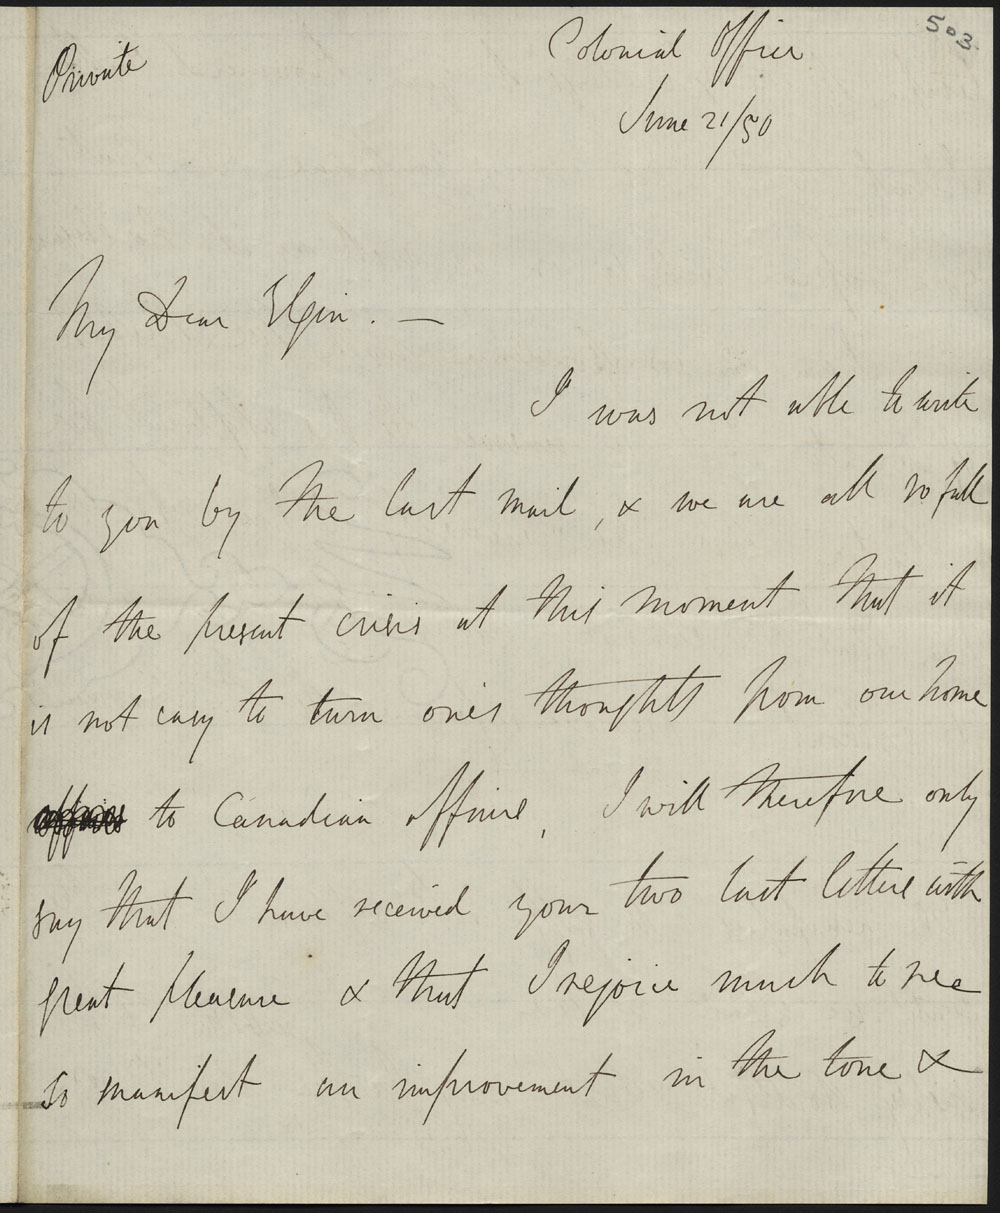 503.
Private
Colonial Office
June 21/50
My Dear Elgin. —
I was not able to write
to you by the last mail, & we are all so full
of the present crisis at this moment that it
is not easy to turn ones thoughts from our home
affairs to Canadian affairs, I will therefore only
say that I have received your two last letters with
great pleasure & that I rejoice much to see
so manifest an improvement in the tone &